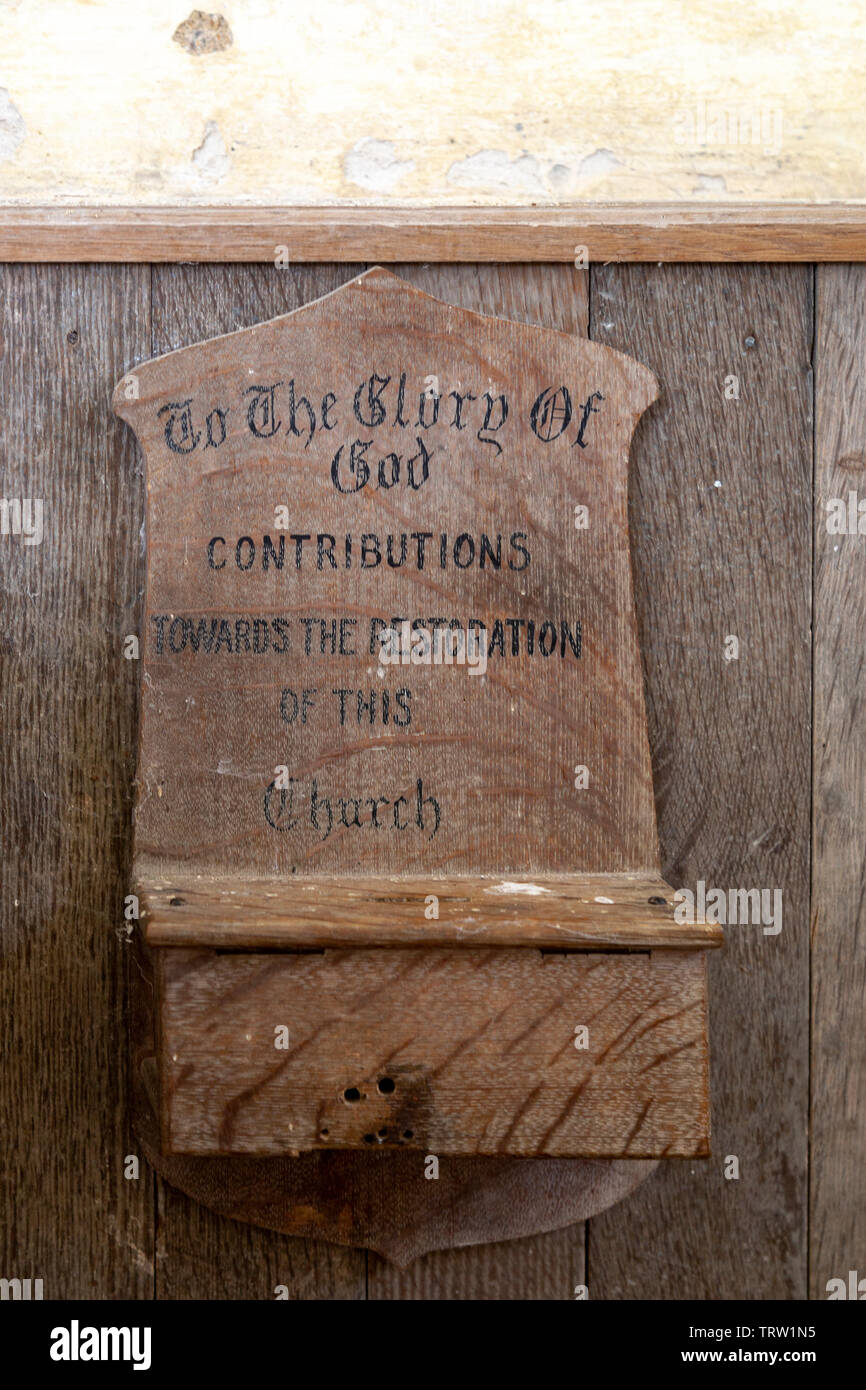 To The Glory Of
God
CONTRIBUTIONS
TOWARDS THE RESTORATION
OF THIS
Church
alamy
Image ID: TRW1N5
www.alamy.com